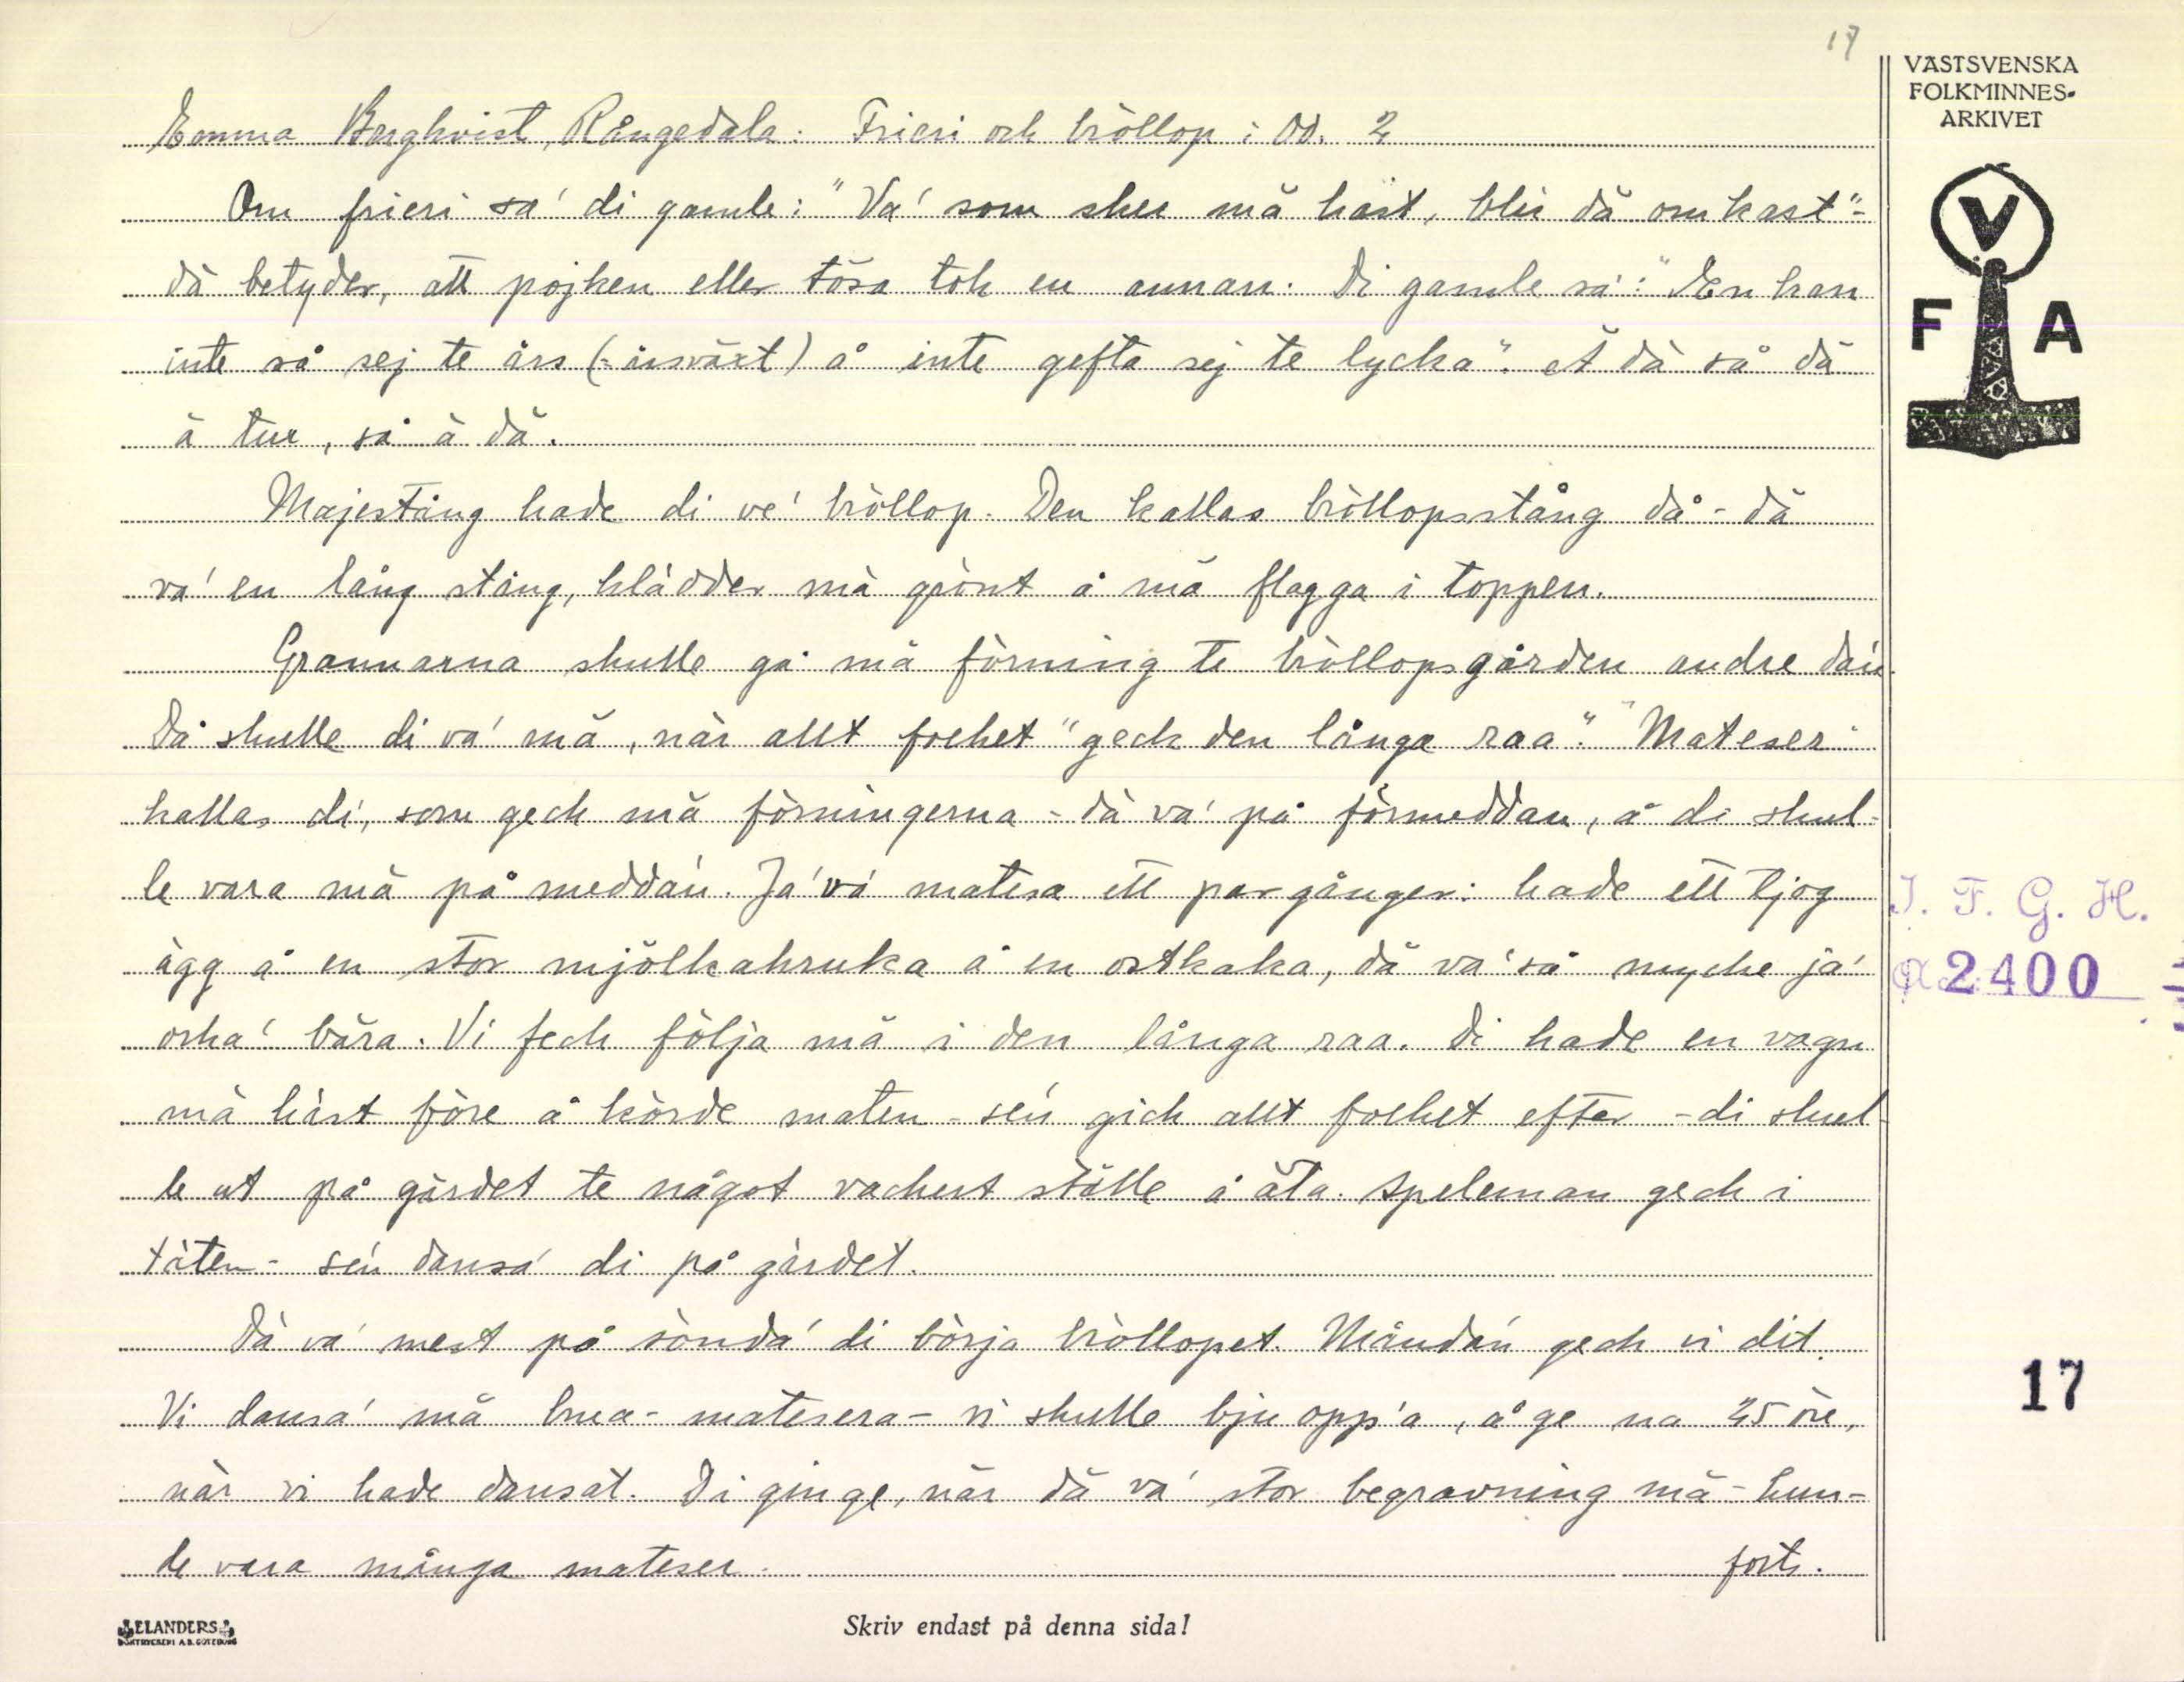 17
VÄSTSVENSKA
FOLKMINNES-
ARKIVET
Emma Berghvist, Rångedala: Frieri och bröllop i Od. 2
Om frieri sa' di gamle: "Va' som sker mä hast, blir dä omkast" -
dä betyder, att pojken eller tösa tok en annan. Di gamle sa': "En kan
inte så sej te års (= årsväxt) å inte gefta sej te lycka". Å dä så dä
ä tur, så ä dä.
Majestång hade di ve' bröllop. Den kallas bröllopsstång då - dä
va' en lång stång, klädder mä grönt å mä flagga i toppen.
Grannarna skulle gå mä förning te bröllopsgården andre da'n.
Då skulle di va' mä, när allt folket "geck den långa raa". "Mateser"
kallas di, som geck mä förningerna - dä va' på förmeddan, å di skul-
le vara mä på medda'n. Ja' va' matesa ett par gånger: hade ett tjog
ägg å en stor mjölkakruka å en ostkaka, dä va' så mycke ja'
orka' bära. Vi feck följa mä i den långa raa. Di hade en vagn
mä häst före å körde maten - se'n gick allt folket efter - di skul-
le ut på gärdet te något vackert ställe å äta. Speleman geck i
täten - se'n dansa' di på gärdet.
Dä va' mest på sönda' di börja bröllopet. Månda'n geck vi dit.
Vi dansa' mä brua - matesera - vi skulle bju opp'a, å ge na 25 öre,
när vi hade dansat. Di ginge, när dä va' stor begravning mä - kun-
de vara många mateser.
forts.
V
F A
I. F. G. H.
2400
17
ELANDERS
BOKTRYCKERI A.B. GÖTEBORG
Skriv endast på denna sida!